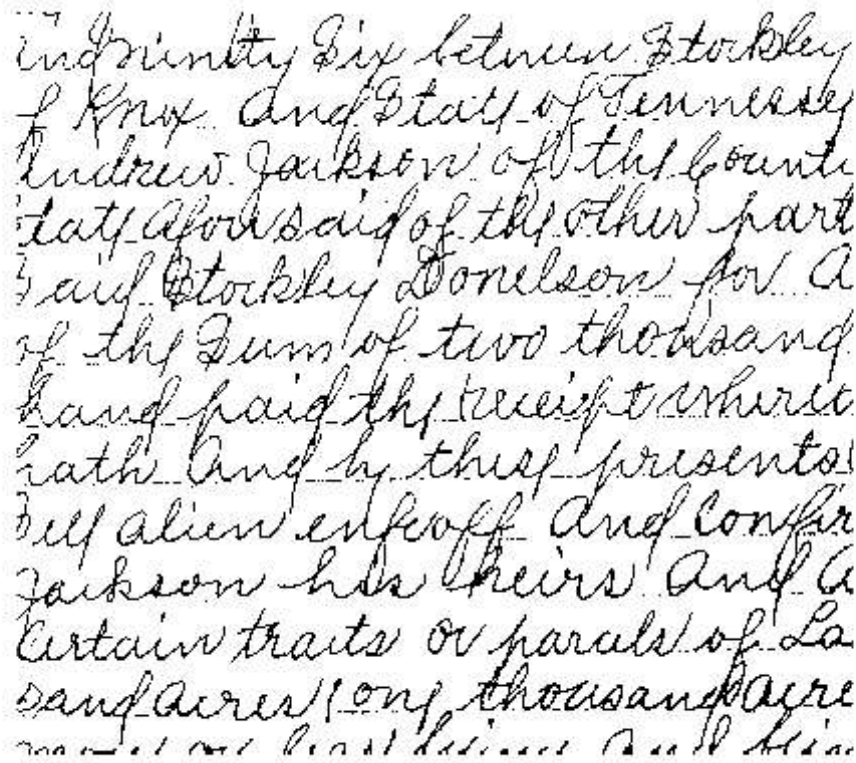 and Ninity Six between Stockley
of Knox and State of Tennessey
Andrew Jackson of the Count
State aforesaid of the other part
Said Stockley Donelson for a
of the Sum of two thousand
hand paid the receipt where
hath and by these presents
Sell alien enfeoff and confir
Jackson his heirs and a
certain tracts or parcels of La
sand acres, one thousand acre
more or less being and